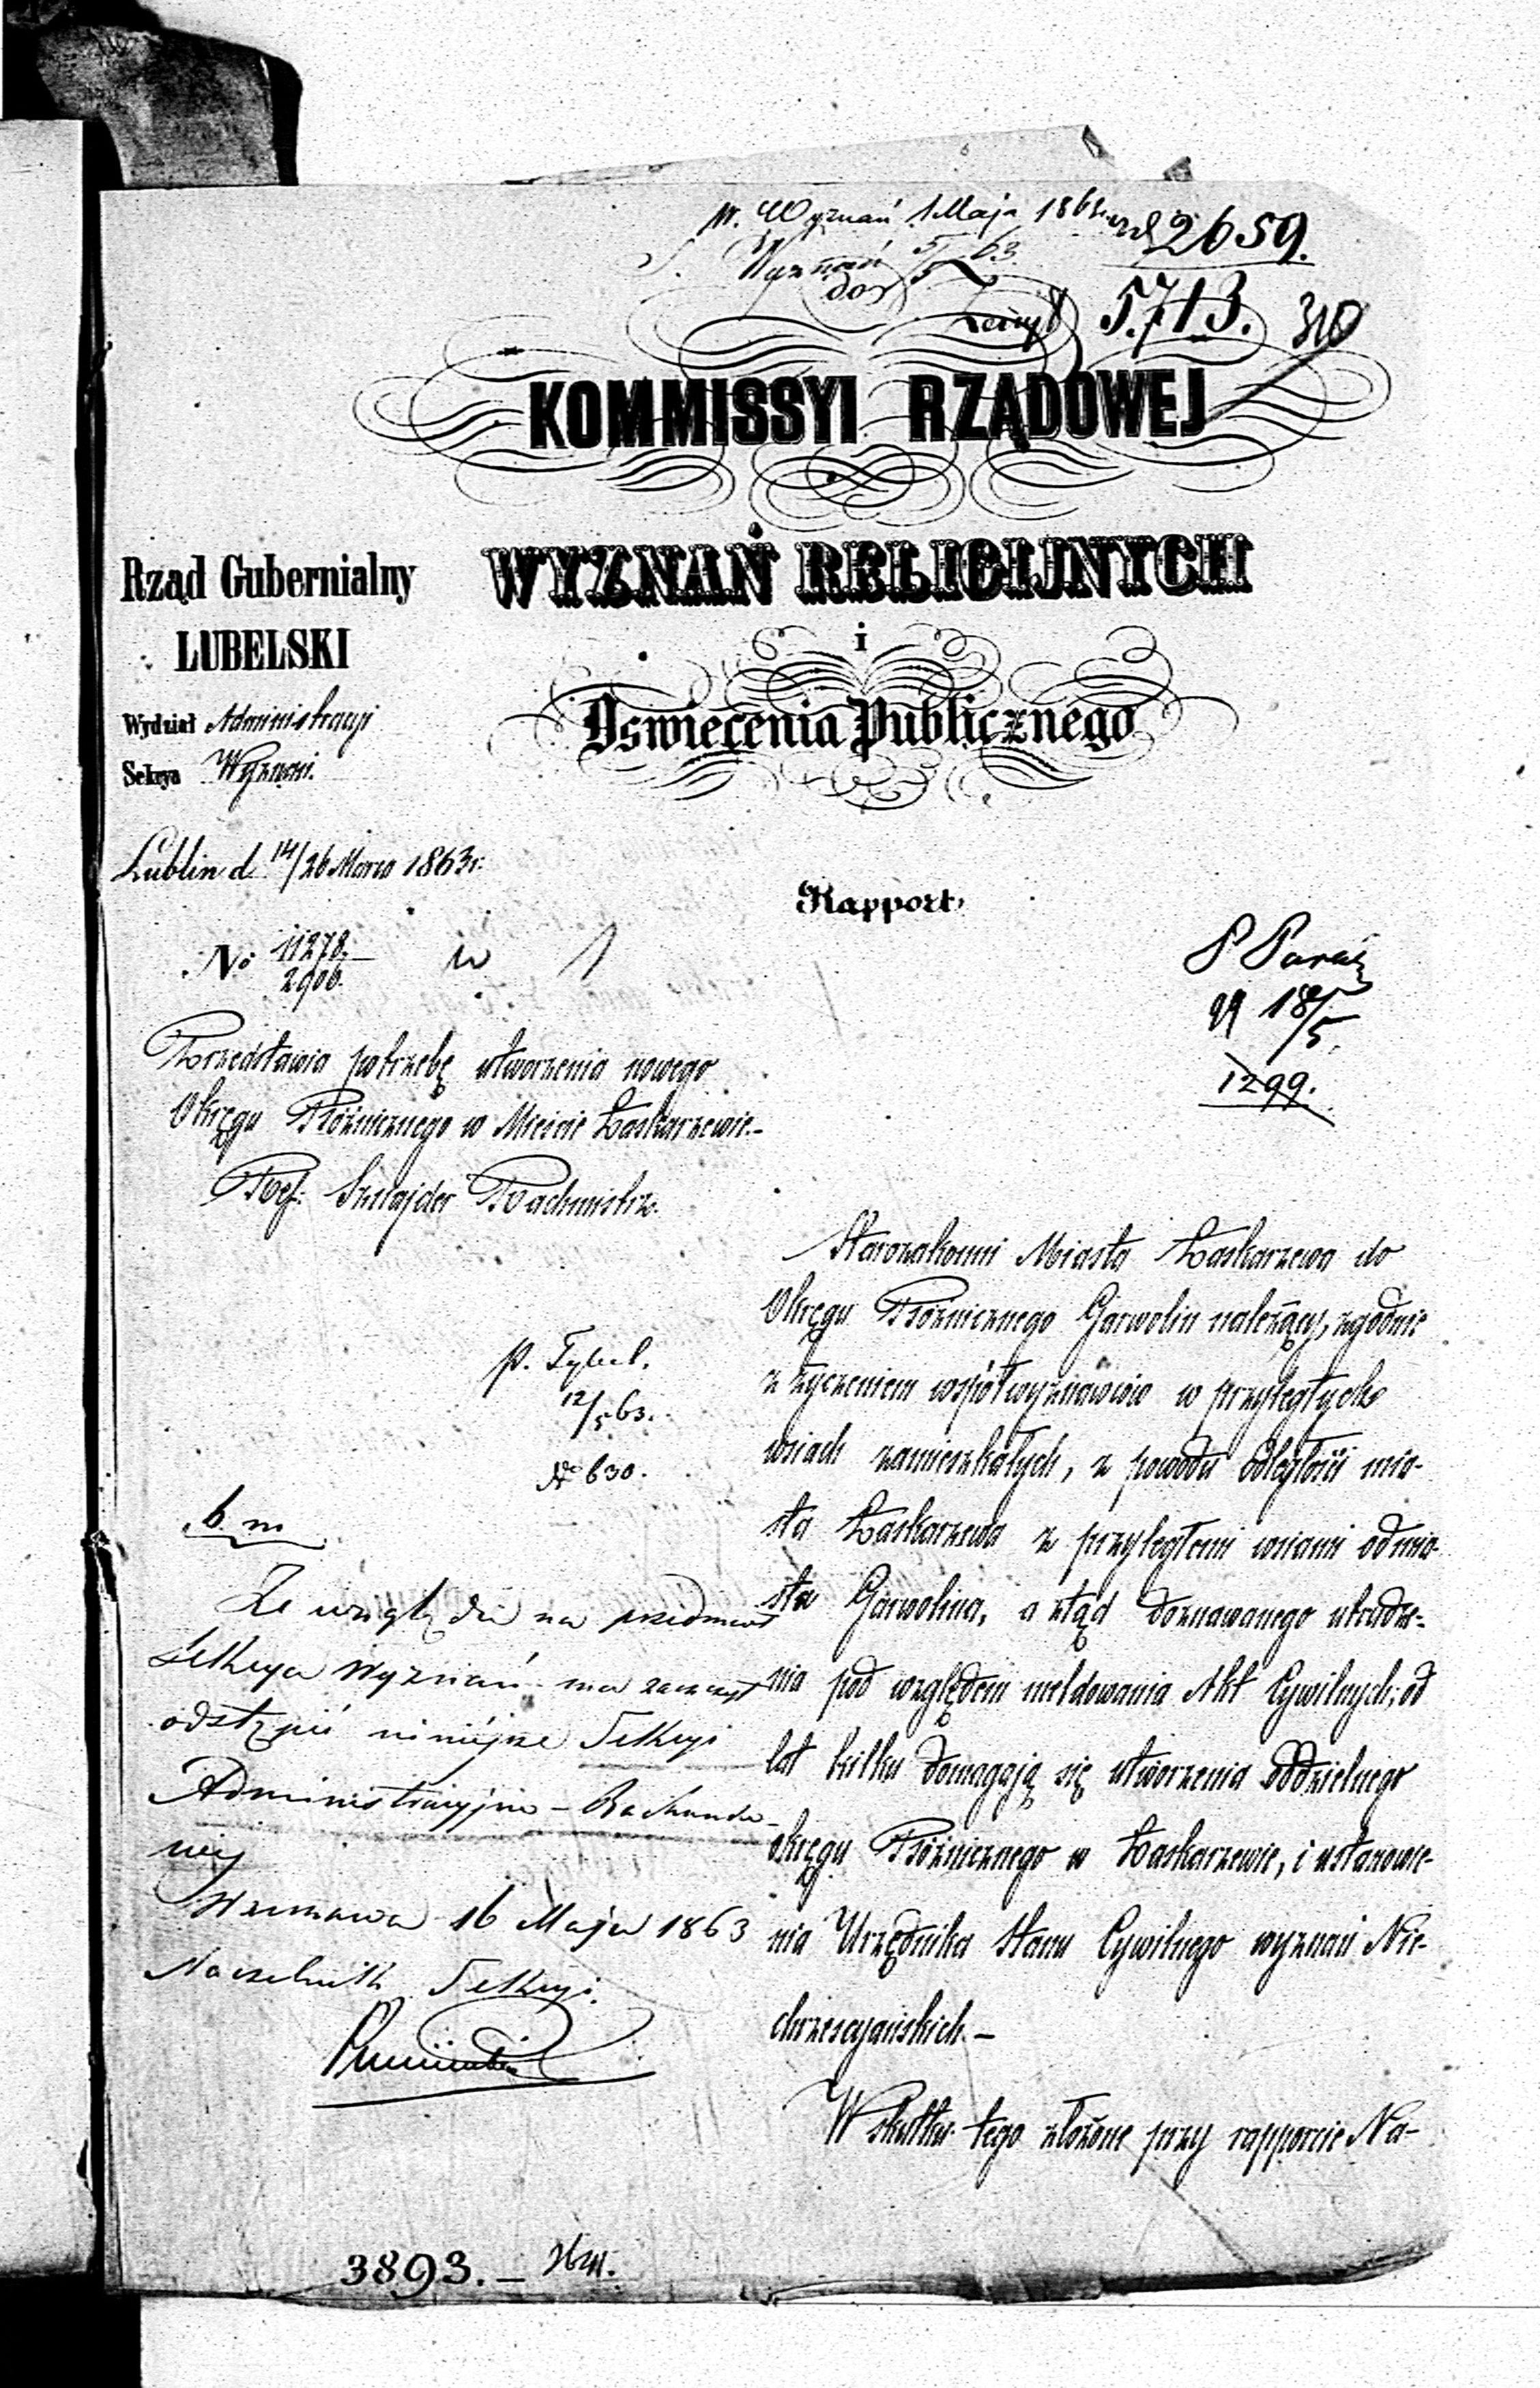 Wyznań 1 Maja 186
2659.
Wyznań 5/5 63
5713. 310
KOMMISSYI RZĄDOWEJ
WYZNAŃ RELIGIJNYCH
i
Oswiecenia Publicznego
Rząd Gubernialny
LUBELSKI
Wydział Administracyi
Sekcya Wyznań.
Lublin d. 14/26 Marca 1863 r.
Rapport
No 11278.
2906.
w 1
P
18/5.
1299.
Przedstawia potrzebę utworzenia nowego
Okręgu Bóżnicznego w Mieście Łaskarzewie.–
Ref: Sznajder Rachmistrz.
p.
12/5 63.
No 630.
b. m
Ze względu na przedmiot
Sekcya Wyznań ma zaszczyt
odstąpić niniejsze Sekcyi
Administracyjno – Rachunko-
wej
Warszawa 16 Maja 1863
Naczelnik Sekcyi.
Starozakonni Miasta Łaskarzewa do
Okręgu Bóżnicznego Garwolin należący, zgodnie
z życzeniem współwyznawców w przyległych
wsiach zamieszkałych, z powodu odległości mia-
sta Łaskarzewa z przyległemi wsiami od mia-
sta Garwolina, a ztąd doznawanego utrudze-
nia pod względem meldowania Akt Cywilnych, od
lat kilku domagają się utworzenia oddzielnego
okręgu Bóżnicznego w Łaskarzewie, i ustanowie-
nia Urzędnika Stanu Cywilnego wyznań Nie-
chrześcyańskich. –
W skutku tego złożone przy rapporcie Na-
3893. –